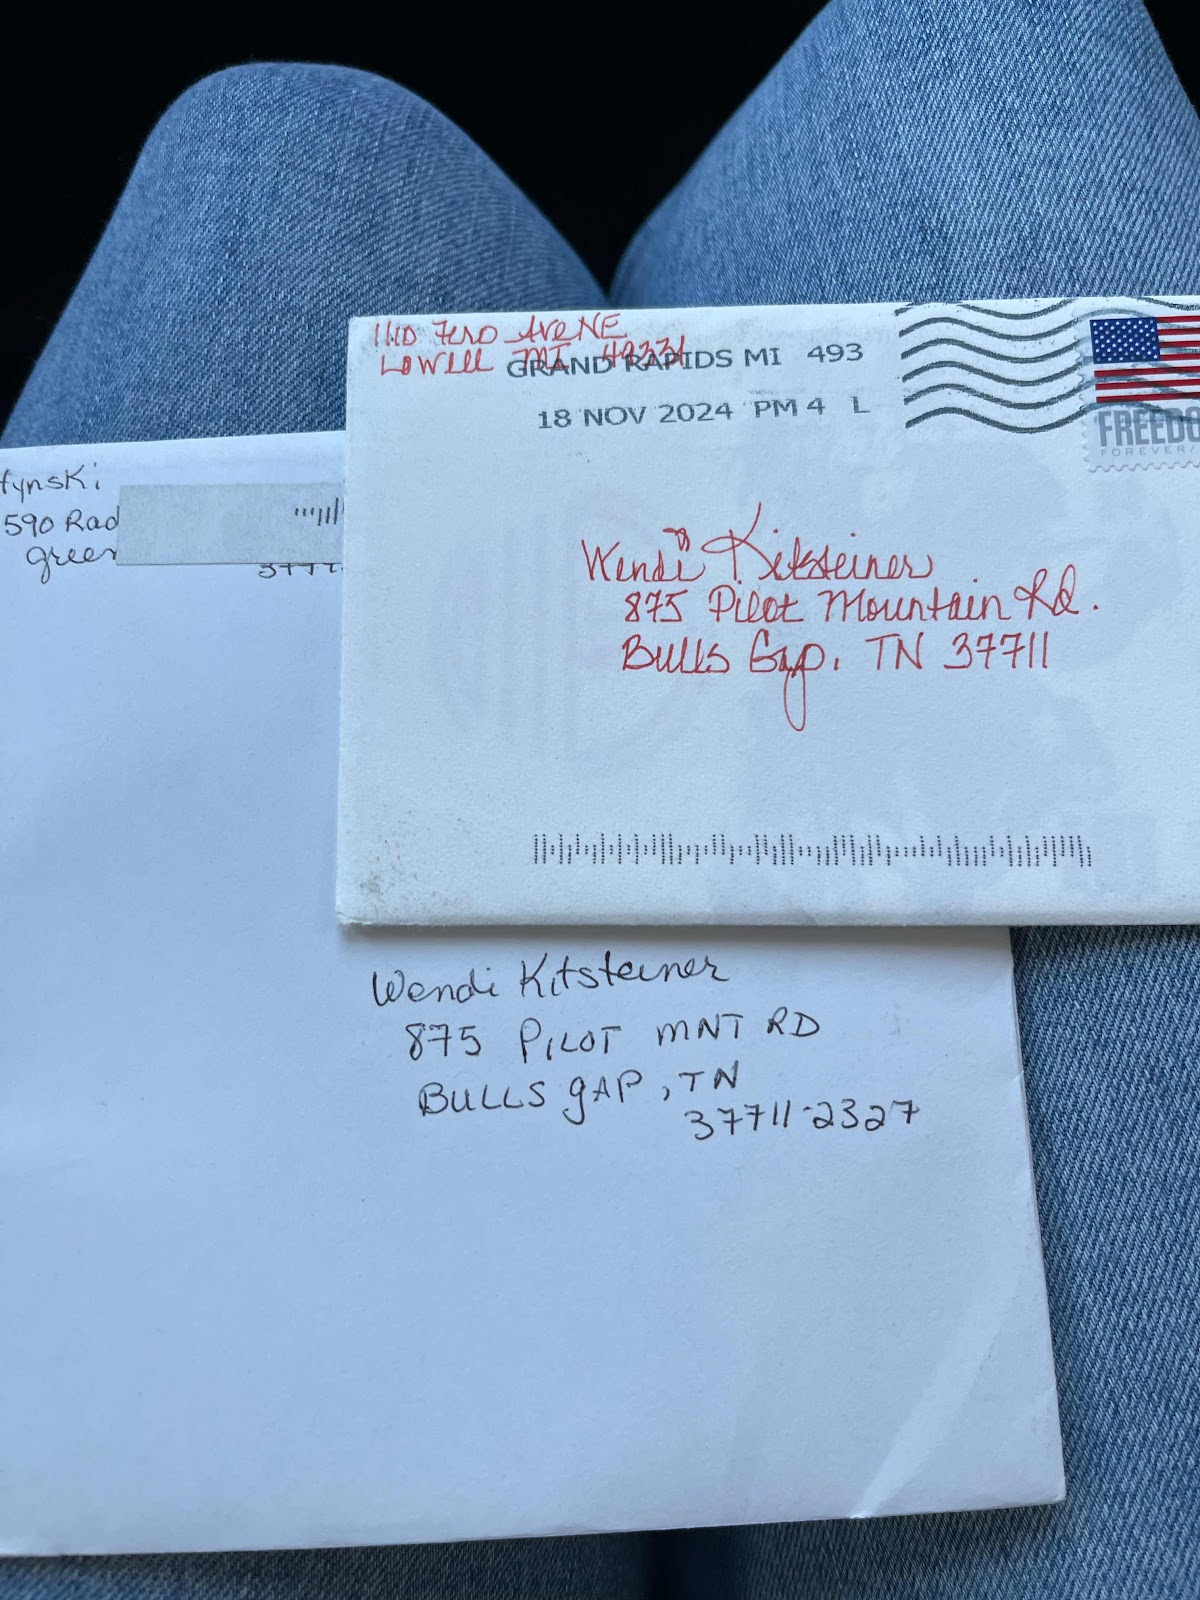 1110 Fero Ave NE
Lowell MI 49331
GRAND RAPIDS MI 493
18 NOV 2024 PM 4 L
FREEDO
FOREVER/
Wendi Kitsteiner
875 Pilot Mountain Rd.
Bulls Gap, TN 37711
tynski
590 Rad
green
Wendi Kitsteiner
875 PILOT MNT RD
BULLS gAP, TN
37711-2327